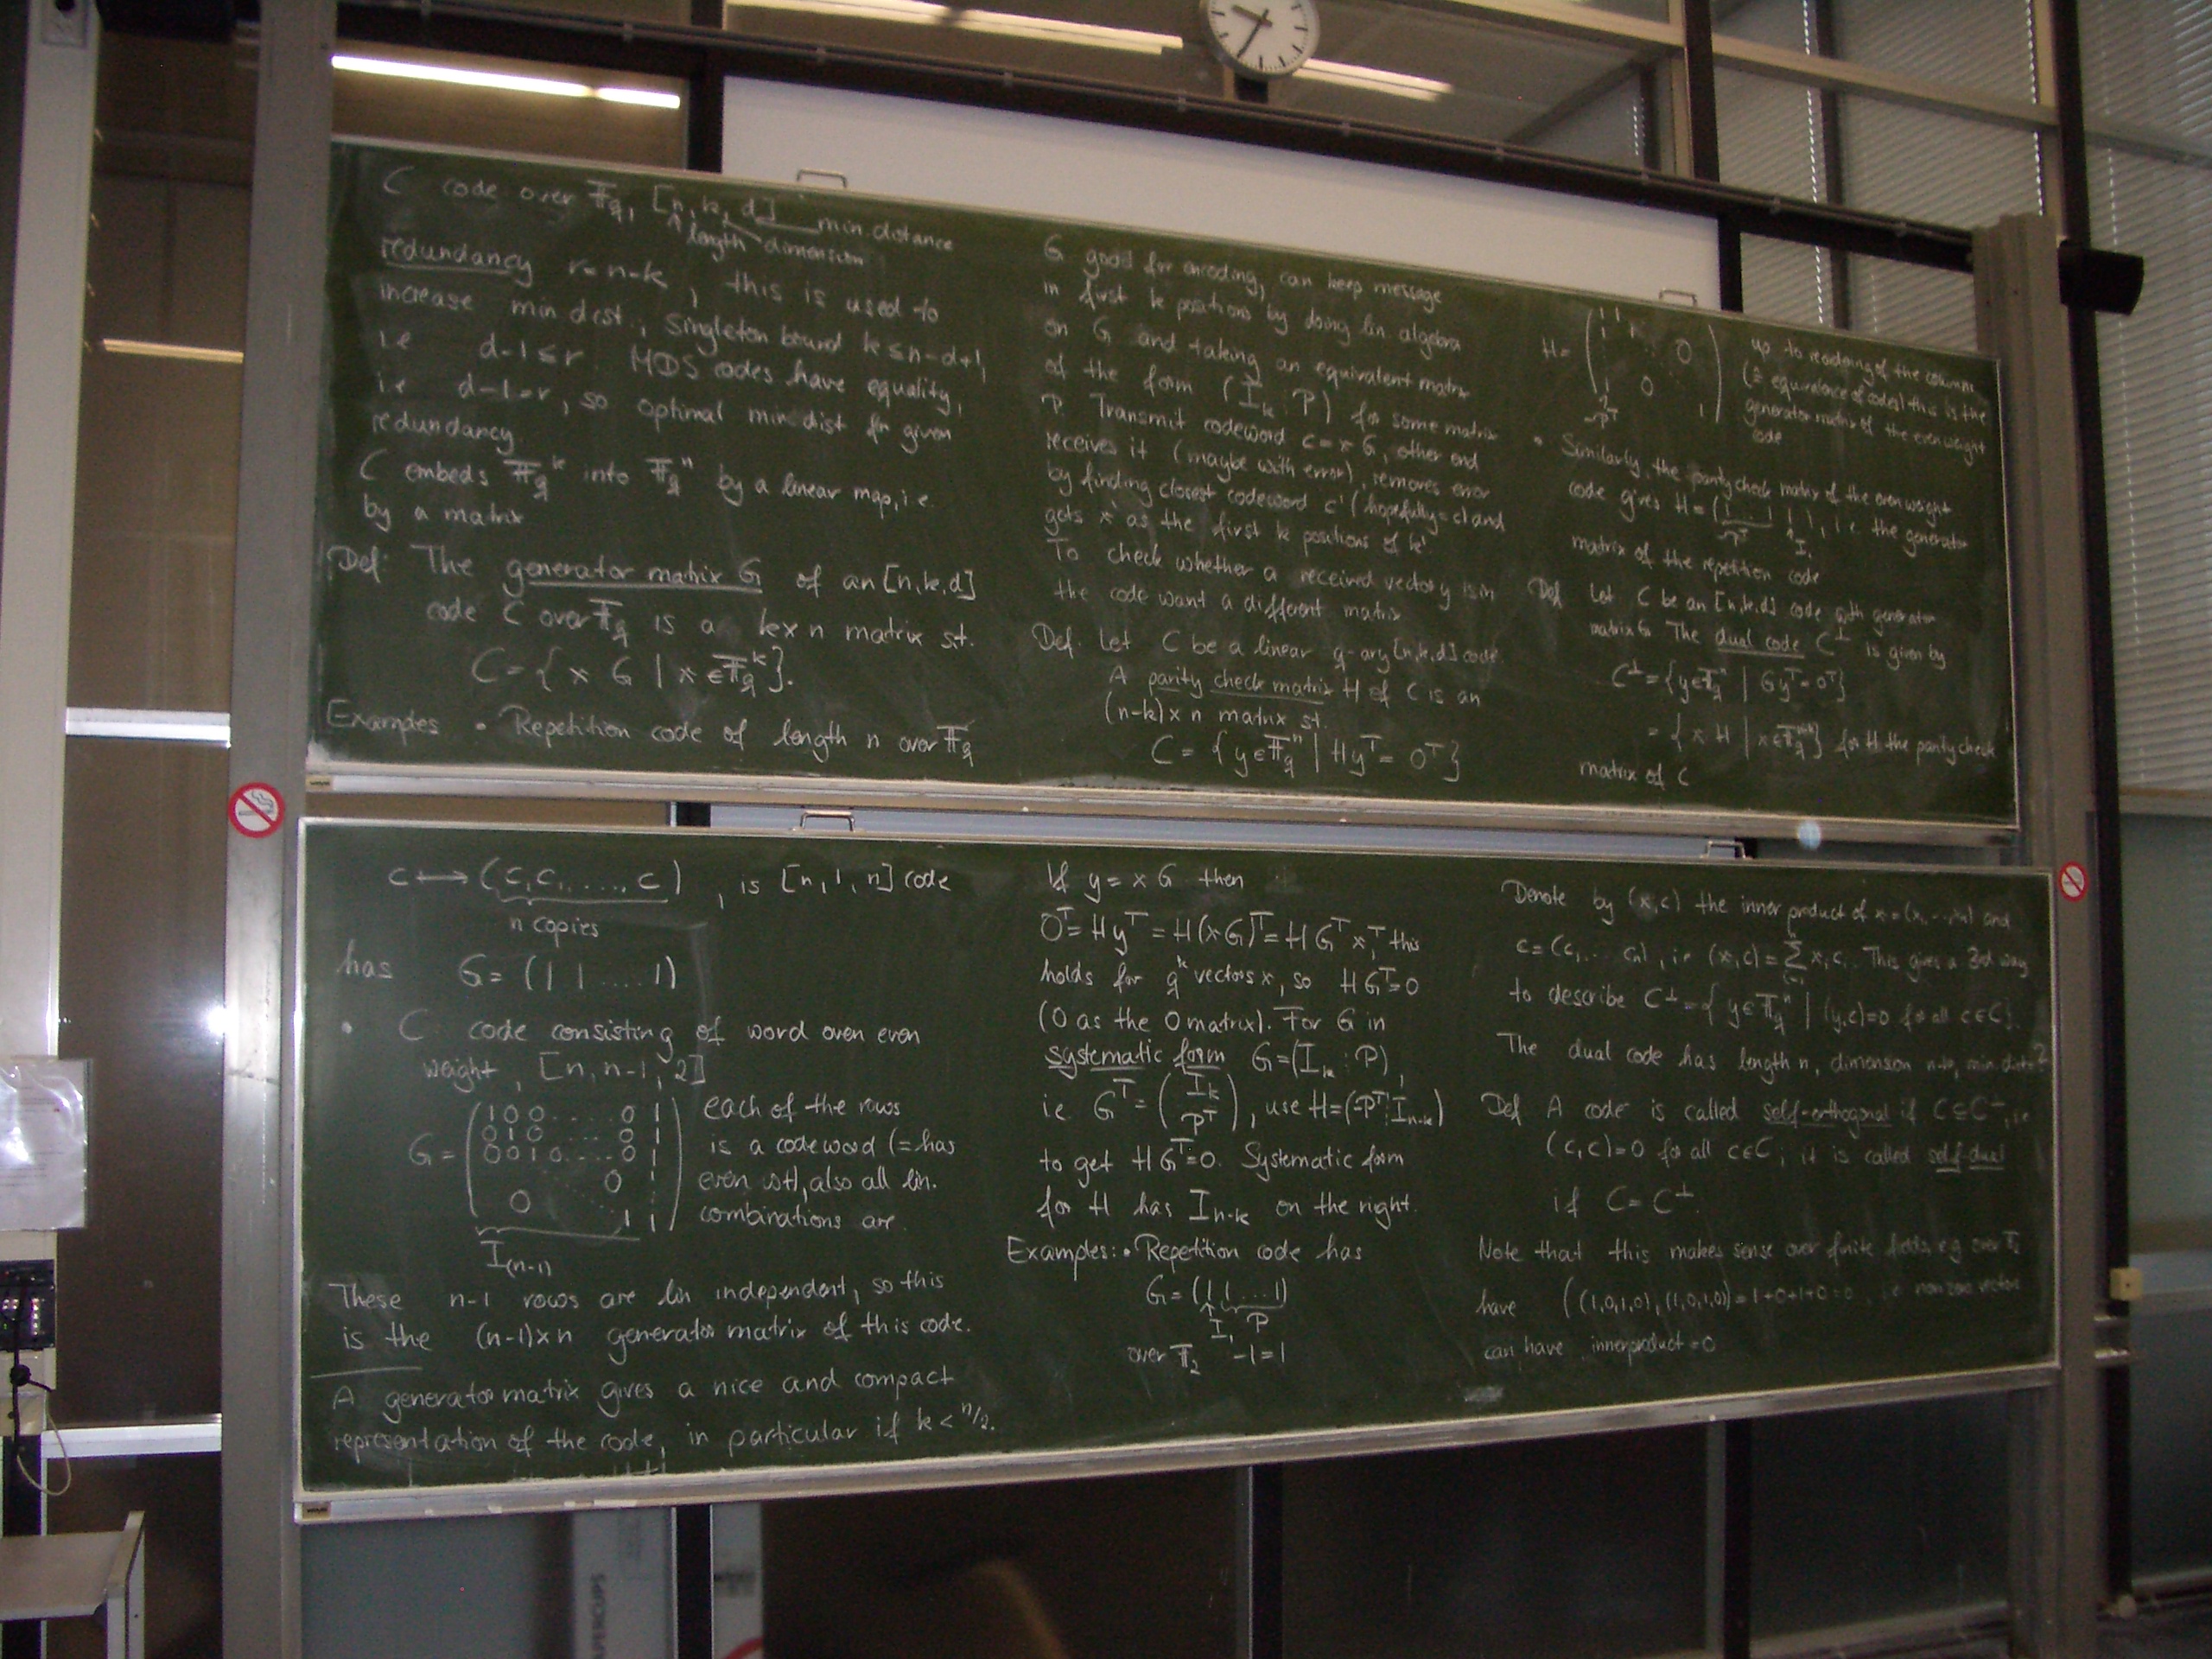 C code over 𝔽q, [n,k,d] min. distance
length dimension
redundancy r=n-k, this is used to
increase min dist., Singleton bound k≤n-d+1,
i.e d-1≤r. MDS codes have equality,
i.e d-1=r, so optimal min dist for given
redundancy.
C embeds 𝔽q^k into 𝔽q^n by a linear map, i.e.
by a matrix
Def: The generator matrix G of an [n,k,d]
code C over 𝔽q is a k×n matrix st.
C={x G | x∈𝔽q^k}.
Examples • Repetition code of length n over 𝔽q
G good for encoding, can keep message
in first k positions by doing lin. algebra
on G and taking an equivalent matrix
of the form (I_k : P) for some matrix
P. Transmit codeword c=xG, other end
receives it (maybe with error), removes error
by finding closest codeword c' (hopefully=c) and
gets x as the first k positions of k'.
To check whether a received vector y is in
the code want a different matrix
Def. Let C be a linear q-ary [n,k,d] code.
A parity check matrix H of C is an
(n-k)×n matrix st.
C = {y∈𝔽q^n | Hy^T = 0^T}
H= ( 1 1 0
1 0 1 )
-P^T
up to reordering of the columns
(= equivalence of codes) this is the
generator matrix of the even weight
code
• Similarly, the parity check matrix of the even weight
code gives H=(1...1 1), i.e. the generator
-P^T I₁
matrix of the repetition code
Def Let C be an [n,k,d] code with generator
matrix G. The dual code C^⊥ is given by
C^⊥={y∈𝔽q^n | Gy^T=0^T}
={x H | x∈𝔽q^(n-k)} for H the parity check
matrix of C
c ⟷ (c,c,....,c), is [n,1,n] code
n copies
has G=(1 1 .... 1)
• C code consisting of word oven even
weight, [n,n-1,2]
G= ( 1 0 0 .... 0 1
0 1 0 .... 0 1
0 0 1 0 .... 0 1
0
0 1 1 )
I(n-1)
each of the rows
is a codeword (=has
even wt), also all lin.
combinations are.
These n-1 rows are lin independent, so this
is the (n-1)×n generator matrix of this code.
A generator matrix gives a nice and compact
representation of the code, in particular if k<n/2.
If y=xG then
0^T=Hy^T=H(xG)^T=HG^T x^T, this
holds for q^k vectors x, so HG^T=0
(0 as the 0 matrix). For G in
systematic form G=(I_k : P),
i.e G^T=(I_k P^T), use H=(-P^T : I_n-k)
to get HG^T=0. Systematic form
for H has I_n-k on the right.
Examples: • Repetition code has
G=(1 1 ... 1)
I₁ P
over 𝔽₂ -1=1
Denote by (x,c) the inner product of x=(x₁...xn) and
c=(c₁...cn), i.e (x,c)=∑ xᵢcᵢ. This gives a 3rd way
to describe C^⊥={y∈𝔽q^n | (y,c)=0 for all c∈C}.
The dual code has length n, dimension n-k, min. dist=?
Def A code is called self-orthogonal if C⊆C^⊥, i.e
(c,c)=0 for all c∈C, it is called self-dual
if C=C^⊥.
Note that this makes sense over finite fields, e.g over 𝔽₂
have ((1,0,1,0),(1,0,1,0))=1+0+1+0=0, i.e nonzero vectors
can have innerproduct=0